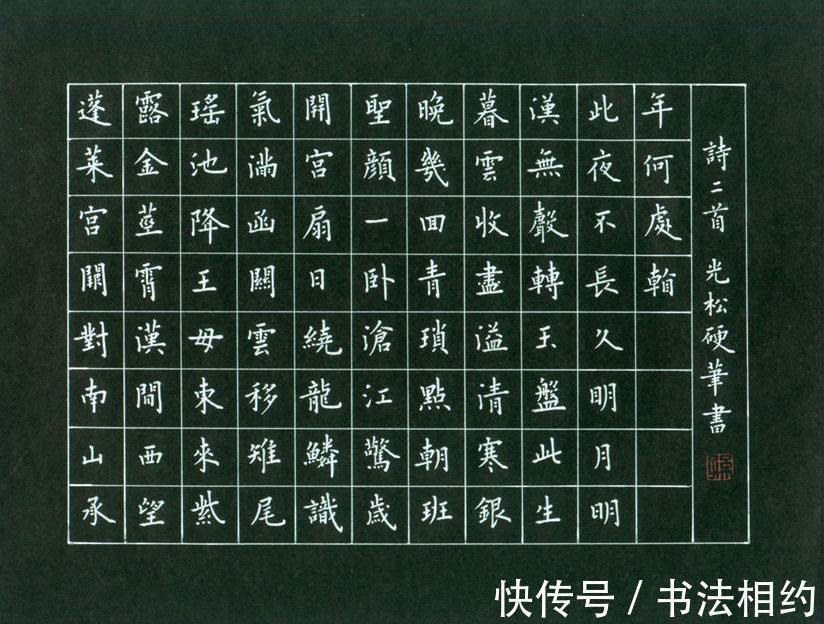 蓬萊宮闕對南山承
露金莖霄漢間西望
瑤池降王母東來紫
氣滿函關雲移雉尾
開宮扇日繞龍鱗識
聖顏一卧滄江驚歲
晚幾回青瑣點朝班
暮雲收盡溢清寒銀
漢無聲轉玉盤此生
此夜不長久明月明
年何處看
詩二首 光松硬筆書
快传号 / 书法相约